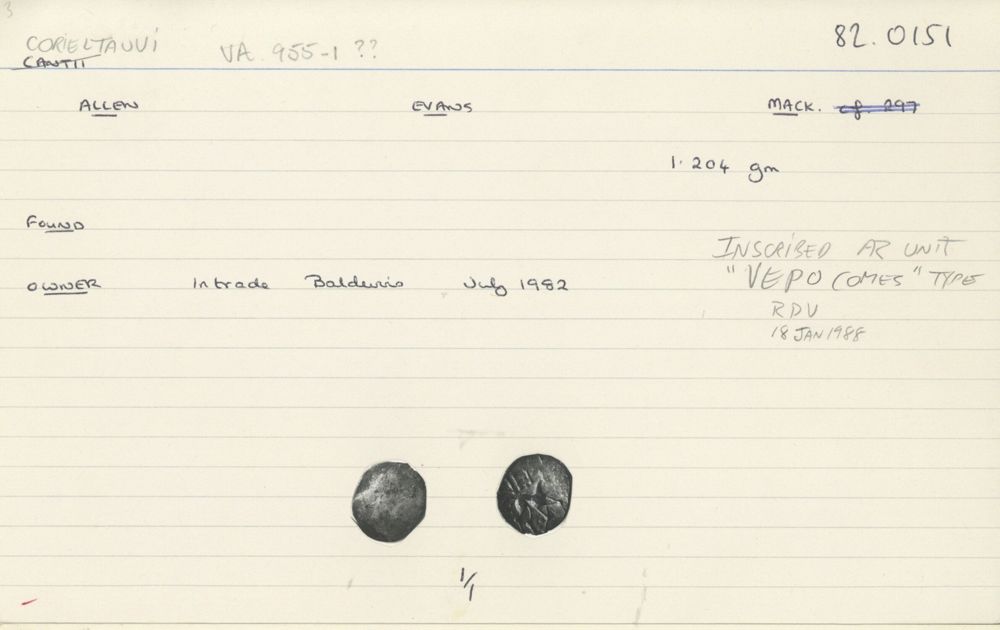 3
CORIELTAUVI VA. 955-1 ?? 82.0151
CANTII
ALLEN EVANS MACK. cf. 297
1.204 gm
FOUND
INSCRIBED AR UNIT
OWNER In trade Baldwins July 1982 "VEPO COMES" TYPE
RDV
18 JAN 1988
1/1